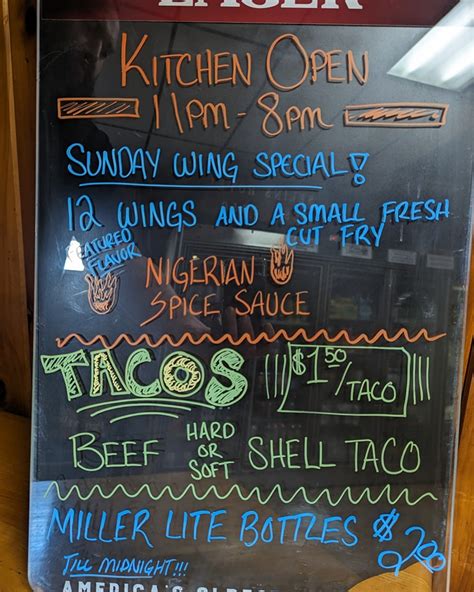 LAGER
KITCHEN OPEN
11PM - 8PM
SUNDAY WING SPECIAL!
12 WINGS AND A SMALL FRESH
CUT FRY
FEATURED
FLAVOR
NIGERIAN
SPICE SAUCE
TACOS $1.50/TACO
BEEF HARD OR SOFT SHELL TACO
MILLER LITE BOTTLES $2.00
TILL MIDNIGHT!!!
AMERICA'S OLDEST